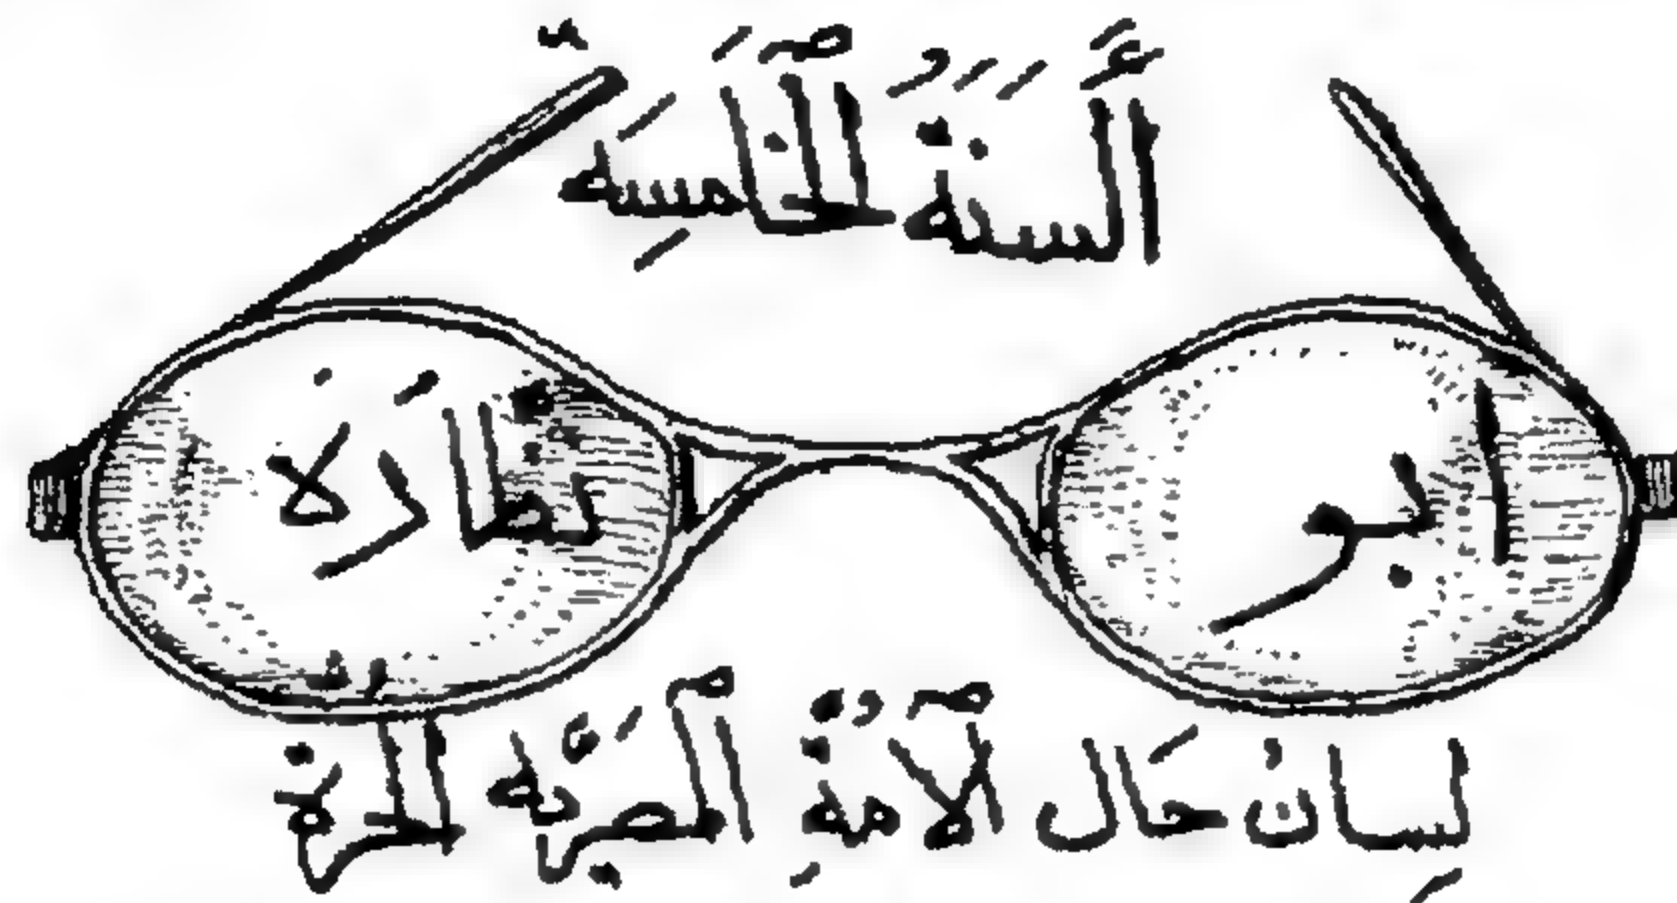 أَلسَنَةُ ٱلخَامِسَه
ابو نَظَّارَة
لِسانْ حَال ٱلامةِ ٱلمصرِيَّه ٱلحرة